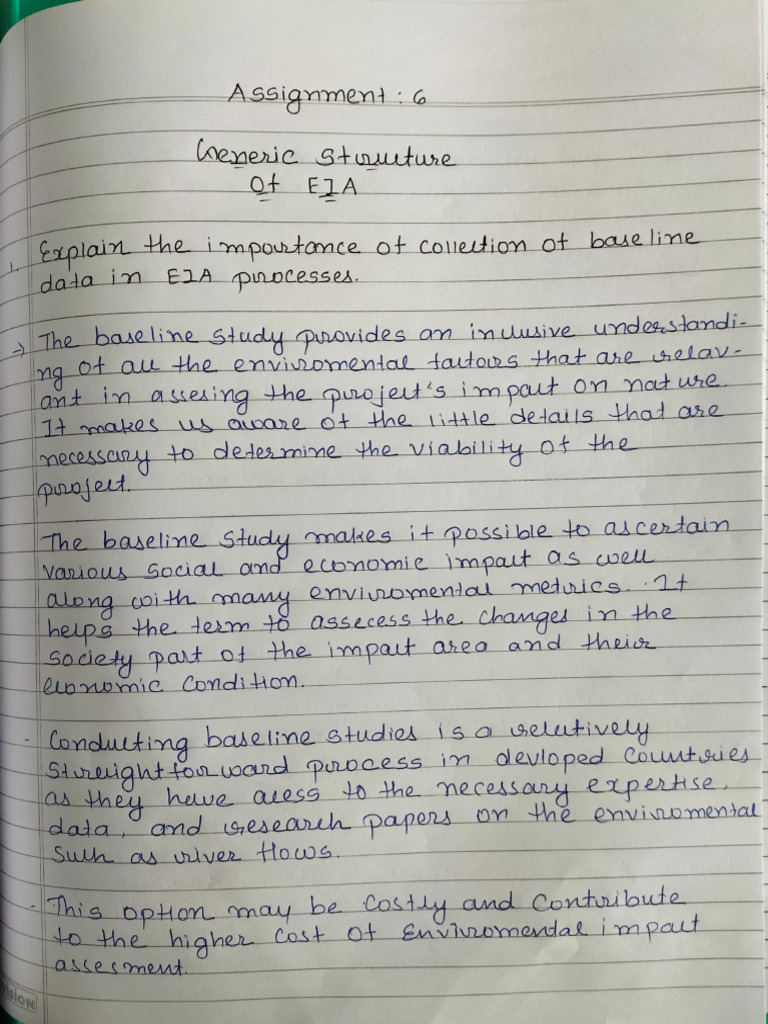 Assignment : 6
Generic Structure
Of EIA
1. Explain the importance of collection of baseline
data in EIA processes.
→ The baseline study provides an inclusive understandi-
ng of all the enviromental factors that are relav-
ant in assesing the project's impact on nature.
It makes us aware of the little details that are
necessary to determine the viability of the
project.
The baseline study makes it possible to ascertain
various social and economic impact as well
along with many enviromental metrics. It
helps the term to assecess the changes in the
society part of the impact area and their
economic condition.
- Conducting baseline studies is a relatively
streightforward process in devloped countries
as they have acess to the necessary expertise,
data, and research papers on the enviromental
such as river flows.
- This option may be costly and contribute
to the higher cost of enviromendal impact
assesment.